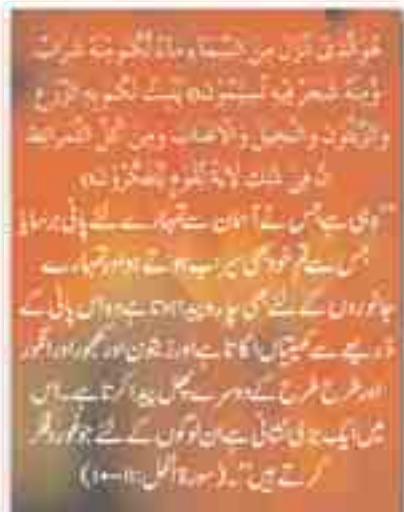 هُوَ الَّذِىْ اَنْزَلَ مِنَ السَّمَآءِ مَآءً لَّكُمْ مِّنْهُ شَرَابٌ
وَّمِنْهُ شَجَرٌ فِيْهِ تُسِيْمُوْنَ۝ يُنْۢبِتُ لَكُمْ بِهِ الزَّرْعَ
وَالزَّيْتُوْنَ وَالنَّخِيْلَ وَالْاَعْنَابَ وَمِنْ كُلِّ الثَّمَرٰتِ ط
اِنَّ فِىْ ذٰلِكَ لَاٰيَةً لِّقَوْمٍ يَّتَفَكَّرُوْنَ۝
”وہی ہے جس نے آسمان سے تمہارے لئے پانی برسایا
جس سے تم خود بھی سیراب ہوتے ہو اور تمہارے
جانوروں کے لئے بھی چارہ پیدا ہوتا ہے وہ اس پانی کے
ذریعے سے کھیتیاں اگاتا ہے اور زیتون اور کھجور اور انگور
اور طرح طرح کے دوسرے پھل پیدا کرتا ہے۔ اس
میں ایک بڑی نشانی ہے ان لوگوں کے لئے جو غور و فکر
کرتے ہیں“۔ (سورۃ النحل:۱۱-۱۰)